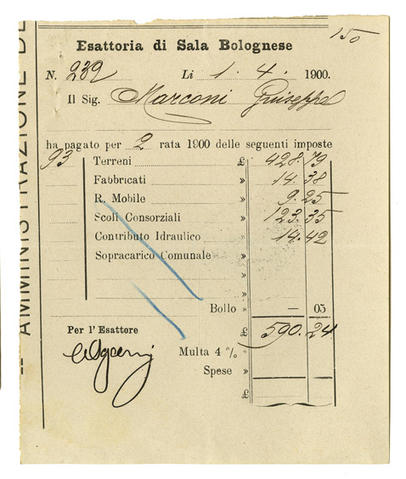 150
Esattoria di Sala Bolognese
N. 239 Li 1. 4. 1900.
Il Sig. Marconi Giuseppe
ha pagato per 2 rata 1900 delle seguenti imposte
93 Terreni £ 428.79
Fabbricati » 14.38
R. Mobile » 9.25
Scoli Consorziali » 123.35
Contributo Idraulico » 14.42
Sopracarico Comunale »
»
»
Bollo » — 05
Per l'Esattore £ 590.24
Multa 4 % »
Spese »
£
AMMINISTRAZIONE DE